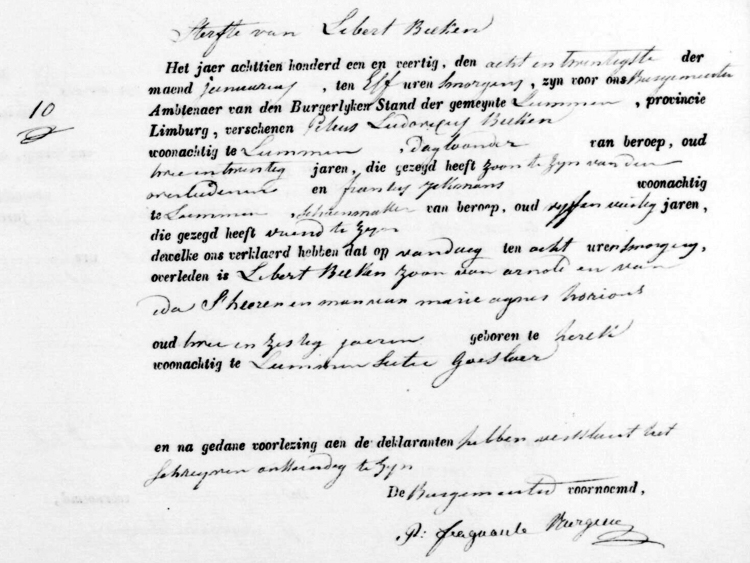 Sterfte van Libert Beeken
Het jaer achttien honderd een en veertig, den acht en twintigste der
maend januarius, ten Elf uren smorgens, zyn voor ons Burgemeester
10
Ambtenaer van den Burgerlyken Stand der gemeynte Lummen, provincie
Limburg, verschenen Petrus Ludovicus Beeken
woonachtig te Lummen, Dagloonder van beroep, oud
twee en twintig jaren, die gezegd heeft zoon te zyn van den
overledenen en woonachtig
te Lummen schoenmaker van beroep, oud vyf en veirtig jaren,
die gezegd heeft vriend te zyn
dewelke ons verklaerd hebben dat op vandaeg ten acht uren smorgens,
overleden is Libert Beeken zoon van arnold en van
ida Theoren en man van marie agnes horions
oud twee en zestig jaeren geboren te herck
woonachtig te Lummen Goeslaer
en na gedane voorlezing aen de deklaranten hebben verklaert het
schryven onkundig te zyn
De Burgemeester voornoemd,